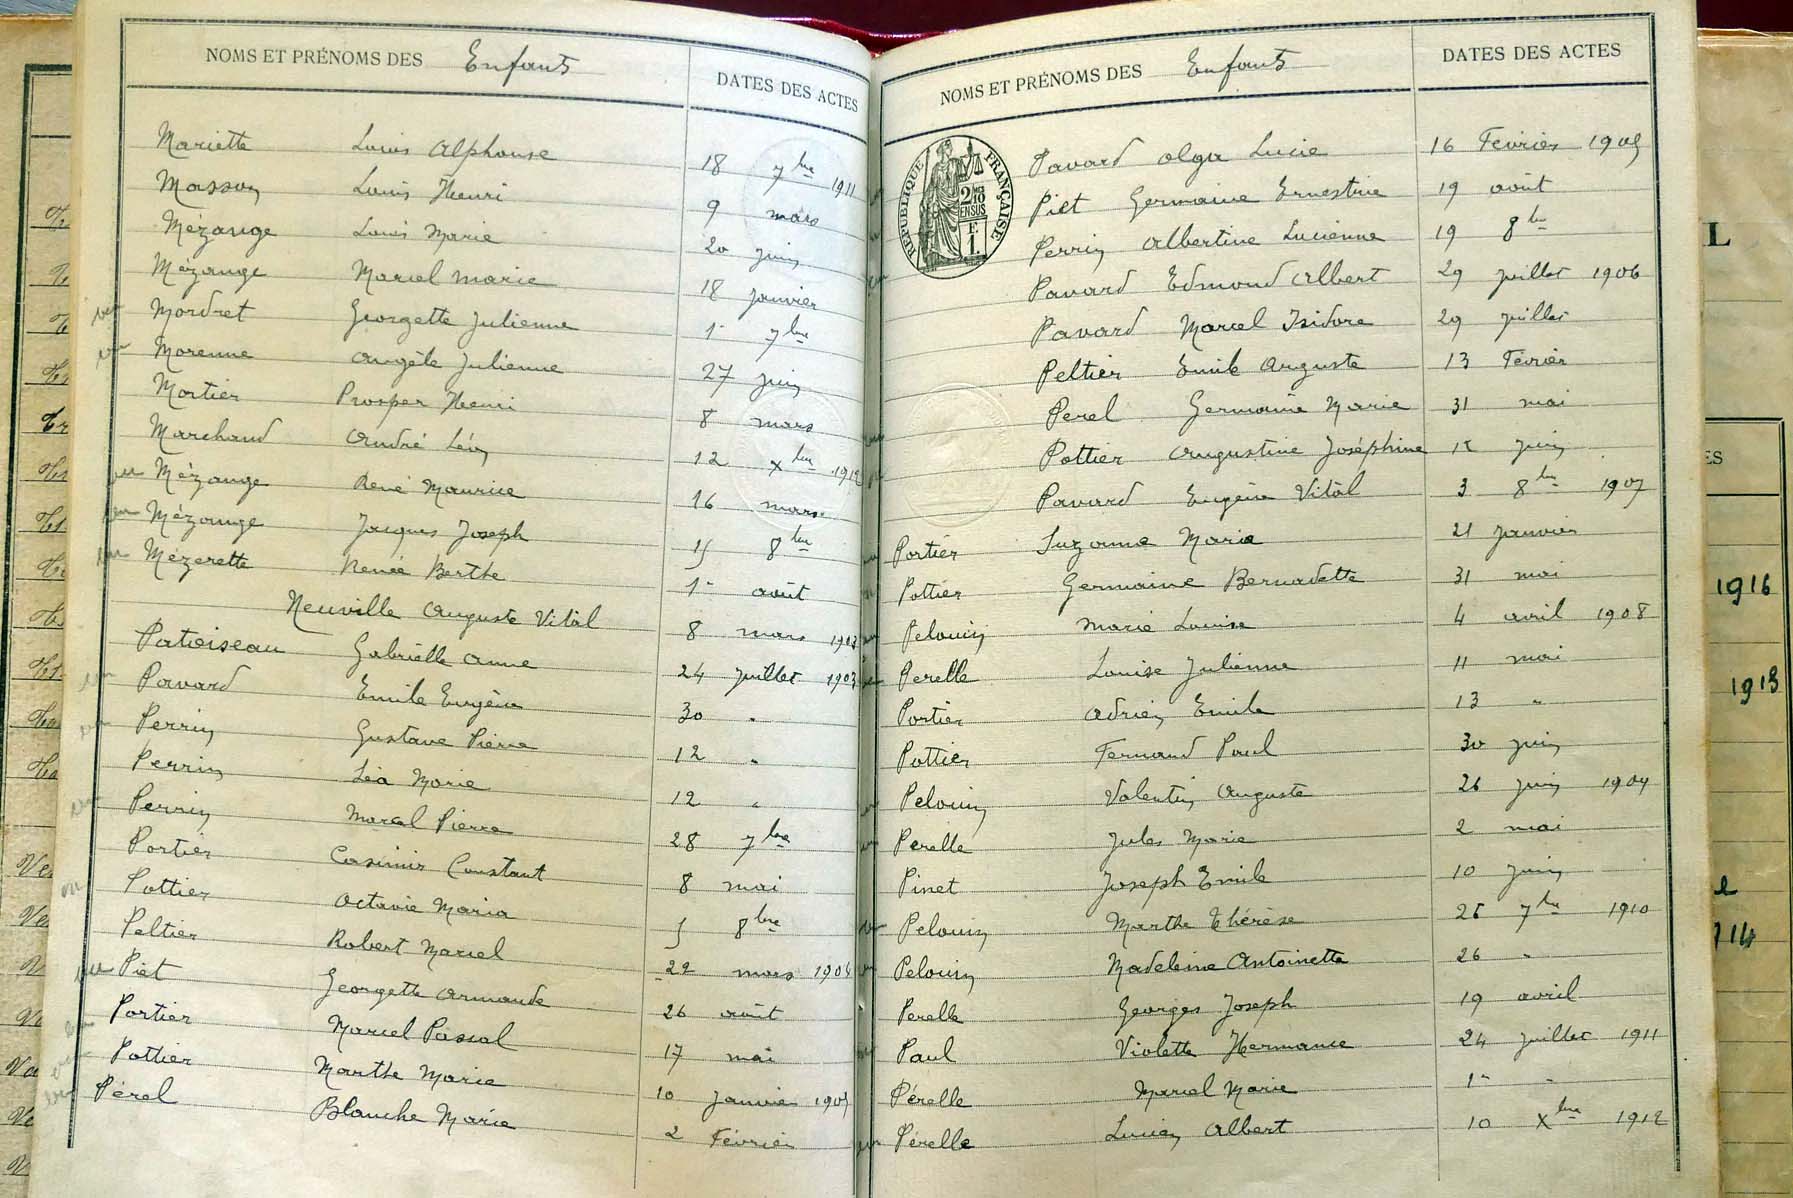 NOMS ET PRÉNOMS DES Enfants DATES DES ACTES
Mariette Louis Alphonse 18 7bre 1911
Masson Louis Henri 9 mars
Mézange Louis Marie 20 juin
Mézange Marcel Marie 18 janvier
Mordret Georgette Julienne 1er 7bre
Morenne Angèle Julienne 27 juin
Mortier Prosper Henri 8 mars
Marchand André Léon 12 Xbre 1912
vu Mézange René Maurice 16 mars
Mézange Jacques Joseph 15 8bre
Mézerette Renée Berthe 1er août
Neuville Auguste Vital 8 mars 1903
Patoiseau Gabrielle Anne 24 juillet 1903
Pavard Emile Eugène 30 "
Perrin Gustave Pierre 12 "
Perrin Léa Marie 12 "
Perrin Marcel Pierre 28 7bre
Portier Casimir Constant 8 mai
Pottier Octavie Maria 5 8bre
Peltier Robert Marcel 22 mars 1904
vu Piet Georgette Armande 26 août
Portier Marcel Pascal 17 mai
Pottier Marthe Marie 10 janvier 1905
Pérel Blanche Marie 2 Février
NOMS ET PRÉNOMS DES Enfants DATES DES ACTES
RÉPUBLIQUE FRANÇAISE
2/10 EN SUS
E 1
Pavard Olga Lucie 16 Février 1905
Piet Germaine Ernestine 19 août
Perrin Albertine Lucienne 19 8bre
Pavard Edmond Albert 29 juillet 1906
Pavard Marcel Isidore 29 juillet
Peltier Emile Auguste 13 Février
Perel Germaine Marie 31 mai
Pottier Augustine Joséphine 15 juin
Pavard Eugène Vital 3 8bre 1907
Portier Suzanne Maria 21 janvier
Pottier Germaine Bernadette 31 mai
Pelouin Marie Louise 4 avril 1908
Perelle Louise Julienne 11 mai
Portier Adrien Emile 13 "
Pottier Fernand Paul 30 juin
Pelouin Valentin Auguste 26 juin 1909
Perelle Jules Marie 2 mai
Pinet Joseph Emile 10 juin
Pelouin Marthe Thérèse 26 7bre 1910
Pelouin Madeleine Antoinette 26 "
Perelle Georges Joseph 19 avril
Paul Violette Hermance 24 juillet 1911
Pérelle Marcel Marie 1er "
Pérelle Lucien Albert 10 Xbre 1912
L
ES
1916
1913